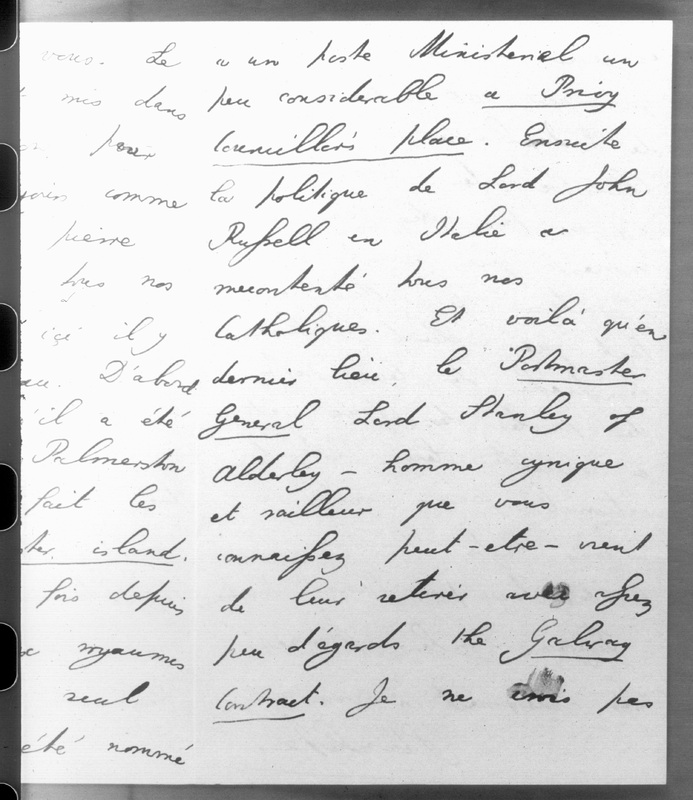 vous. Le
mis dans
pour
comme
pierre
tous nos
içi il y
D'abord
qu'il a été
Palmerston
fait les
island.
fois depuis
royaumes
seul
été nommé
a un poste Ministeriel un
peu considerable a Privy
Councillor's place. Ensuite
la politique de Lord John
Russell en Italie a
mecontenté tous nos
Catholiques. Et voilà qu'en
dernier lieu, le Postmaster
General Lord Stanley of
Alderley – homme cynique
et railleur que vous
connaissez peut-etre – vient
de leur retirer avec assez
peu d'égards the Galway
Contract. Je ne crois pas